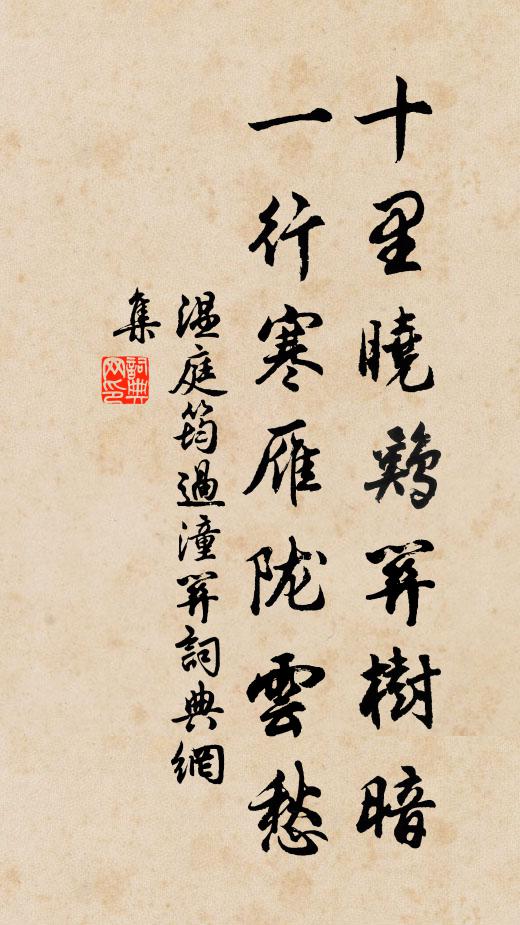 十里曉鷄關樹暗
一行寒雁隴雲愁
温庭筠過潼關詞典網
集
詞典網印